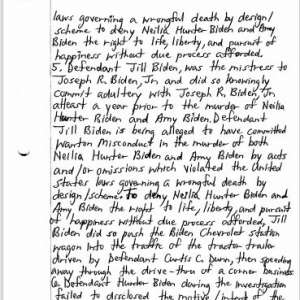 laws governing a wrongful death by design/
scheme to deny Neilia Hunter Biden and Amy
Biden the right to life, liberty, and pursuit of
happiness without due process afforded.
5. Defendant Jill Biden, was the mistress to
Joseph R. Biden, Jr. and did so knowingly
commit adultery with Joseph R, Biden, Jr.
atleast a year prior to the murder of Neilia
Hunter Biden and Amy Biden. Defendant
Jill Biden is being alleged to have committed
Wanton Misconduct in the murder of both
Neilia Hunter Biden and Amy Biden by acts
and/or omissions which violated the United
States laws governing a wrongful death by
design/scheme. To deny Neilia Hunter Biden and
Amy Biden the right to life, liberty, and pursuit
of happiness without due process afforded, Jill
Biden did so push the Biden Chevrolet station
wagon into the traffic of the tractor trailer
driven by Defendant Curtis C. Dunn, then speeding
away through the drive-thru of a corner business
6. Defendant Hunter Biden during the investigation
failed to disclosed the motive/intent of the